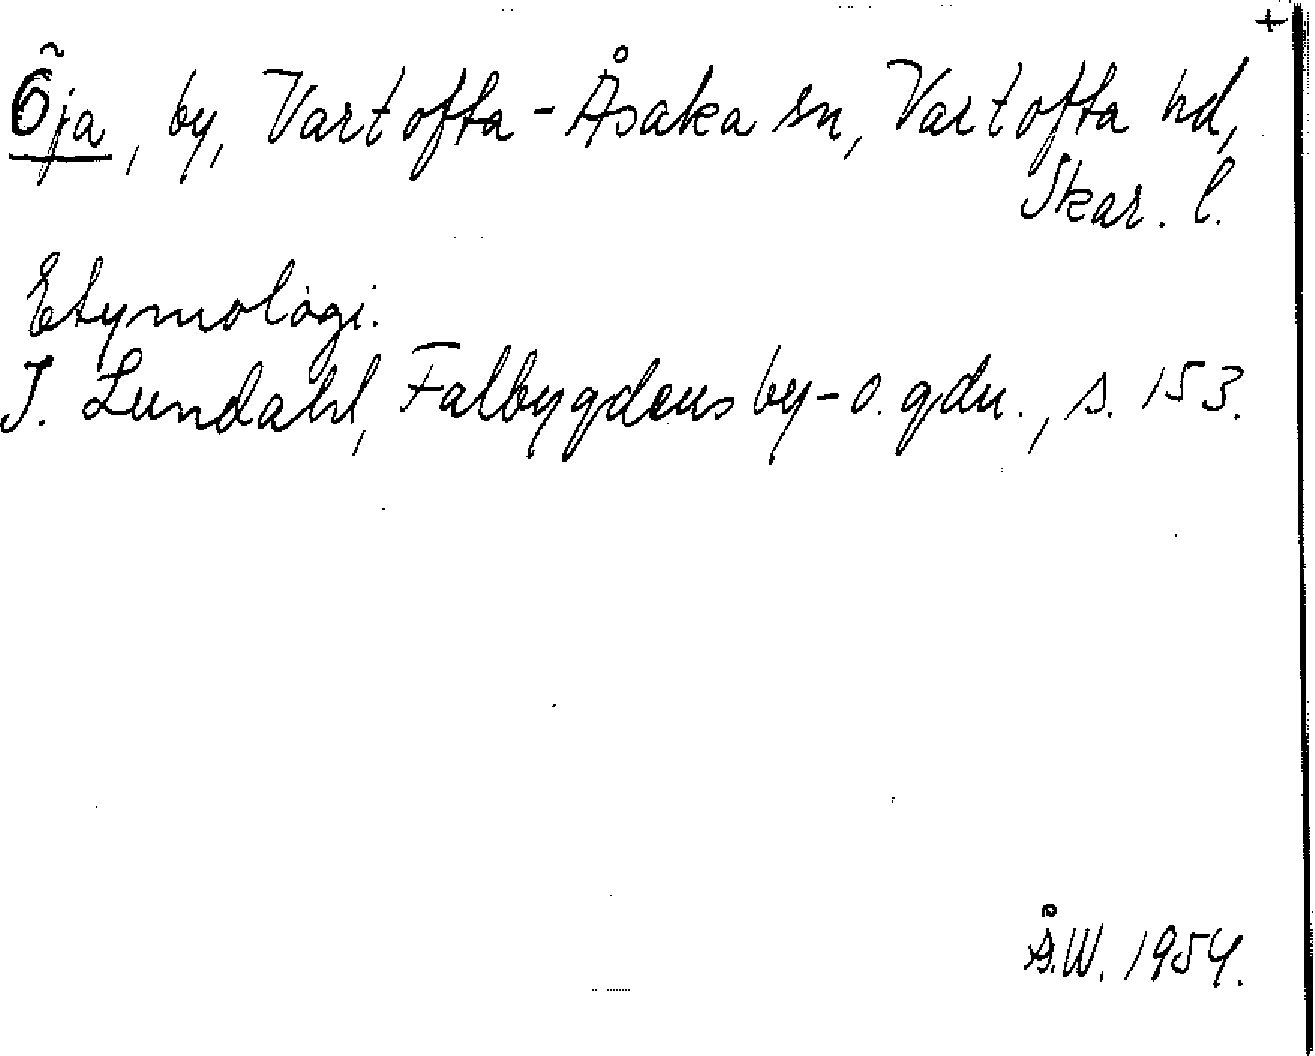 +
Öja, by, Vartofta-Åsaka sn, Vartofta hd,
Skar. l.
Etymologi.
I. Lundahl, Falbygdens by- o. gdn., s. 153.
Å.W. 1954.